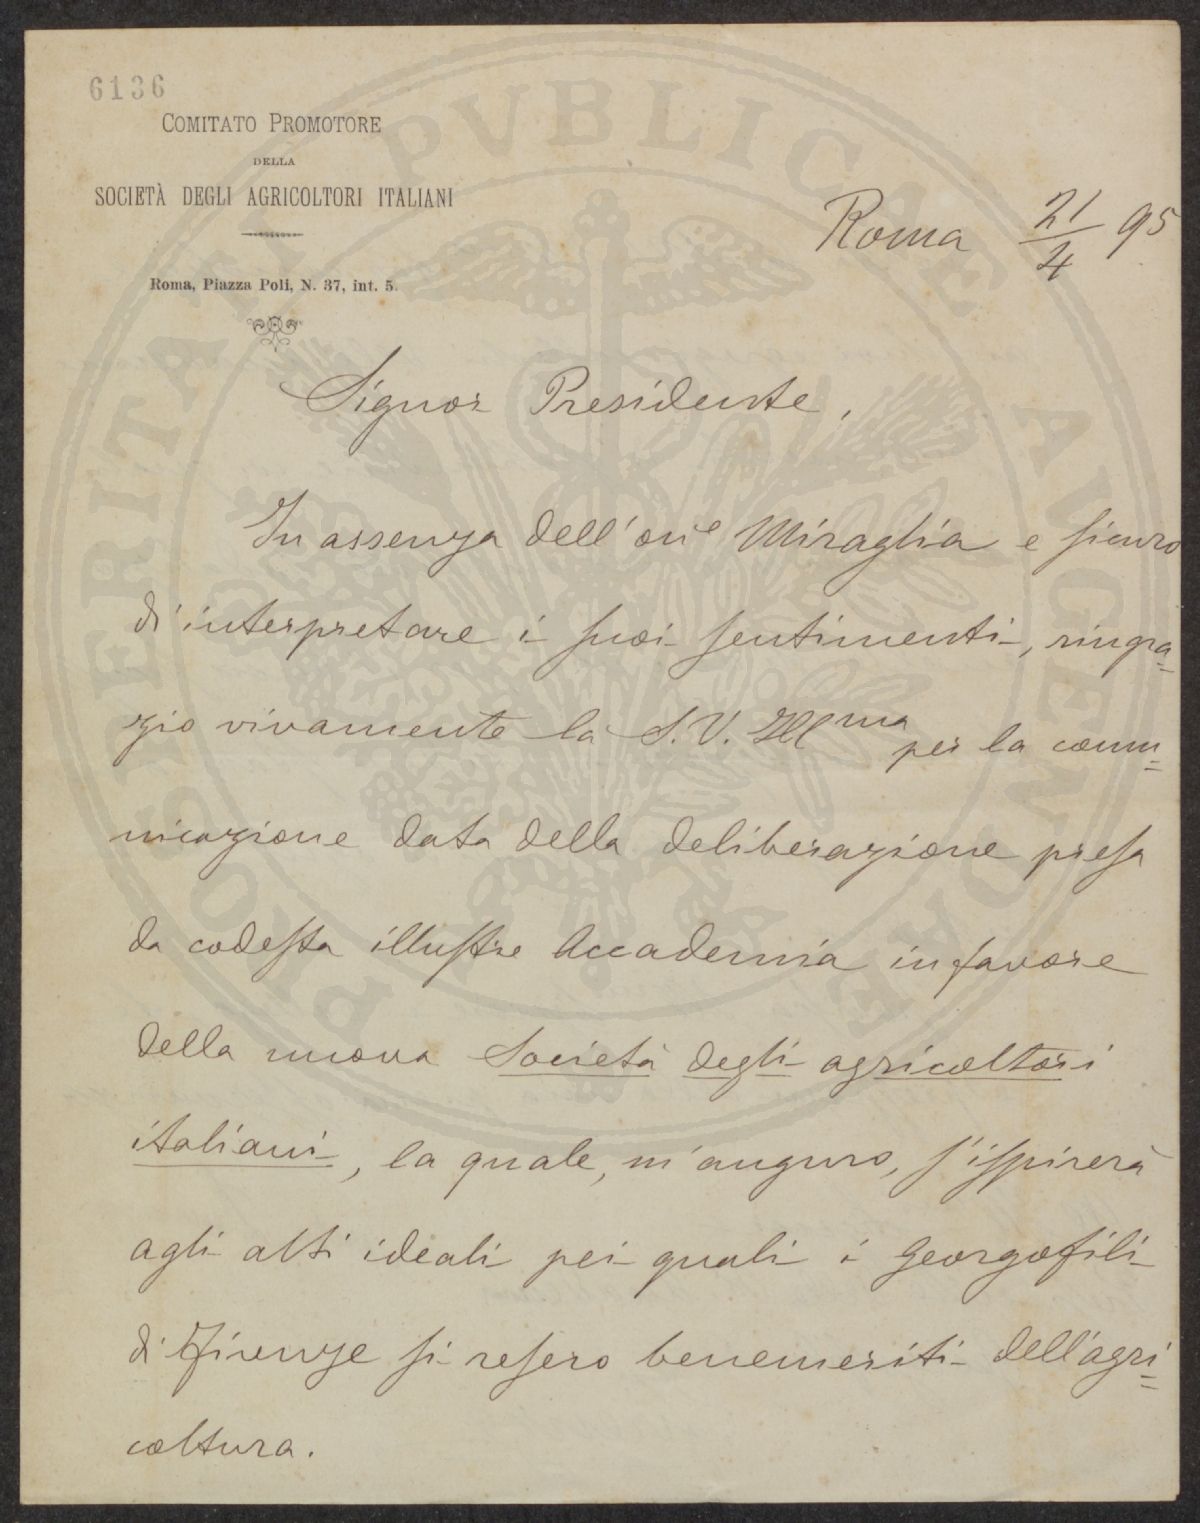 6136
COMITATO PROMOTORE
DELLA
SOCIETÀ DEGLI AGRICOLTORI ITALIANI
Roma, Piazza Poli, N. 37, int. 5.
Roma 21/4 95
Signor Presidente,
In assenza dell'on.e Miraglia e sicuro
di interpretare i suoi sentimenti, ringra=
zio vivamente la S.V. Ill.ma per la comu=
nicazione data della deliberazione presa
da codesta illustre Accademia in favore
della nuova Società degli agricoltori
italiani, la quale, m'auguro, s'ispirerà
agli alti ideali pei quali i Georgofili
di Firenze si resero benemeriti dell'agri=
coltura.
PROSPERITATI PVBLICAE AVGENDAE